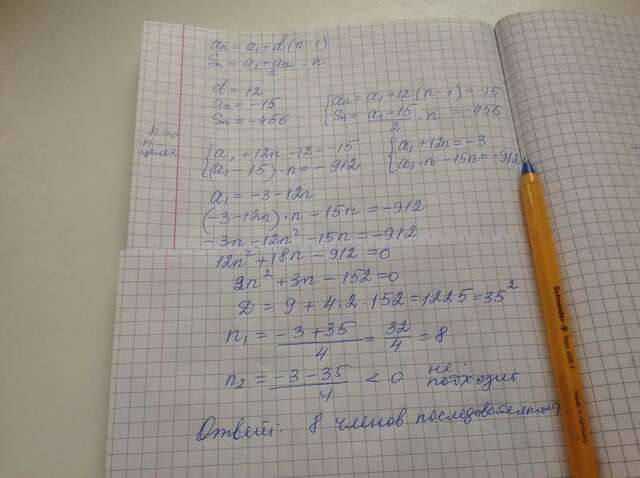 an = a₁ + d(n-1)
Sn = (a₁ + an)/2 · n
d = 12
an = -15
Sn = -456
{ an = a₁ + 12(n-1) = -15
{ Sn = (a₁ - 15)/2 · n = -456
n>0
n-
целое
{ a₁ + 12n - 12 = -15
{ (a₁ - 15) · n = -912
{ a₁ + 12n = -3
{ a₁ · n - 15n = -912
a₁ = -3 - 12n
(-3 - 12n) · n - 15n = -912
-3n - 12n² - 15n = -912
12n² + 18n - 912 = 0
2n² + 3n - 152 = 0
D = 9 + 4·2·152 = 1225 = 35²
n₁ = (-3 + 35)/4 = 32/4 = 8
n₂ = (-3 - 35)/4 < 0 не
подходит
Ответ: 8 членов последовательности
Schneider Tops 505 F
Made in Germany